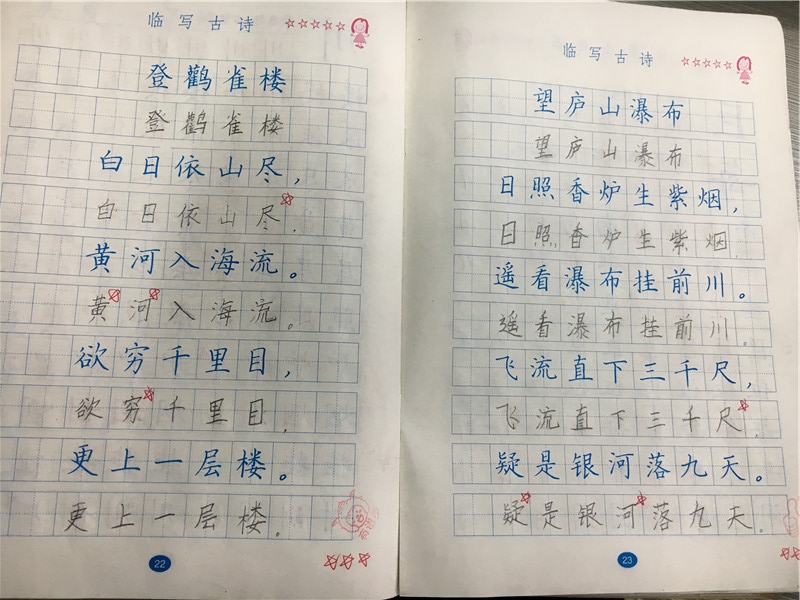 临写古诗
登鹳雀楼
登鹳雀楼
白日依山尽，
白日依山尽，
黄河入海流。
黄河入海流。
欲穷千里目，
欲穷千里目，
更上一层楼。
更上一层楼。
22
临写古诗
望庐山瀑布
望庐山瀑布
日照香炉生紫烟，
日照香炉生紫烟
遥看瀑布挂前川。
遥看瀑布挂前川。
飞流直下三千尺，
飞流直下三千尺，
疑是银河落九天。
疑是银河落九天。
23